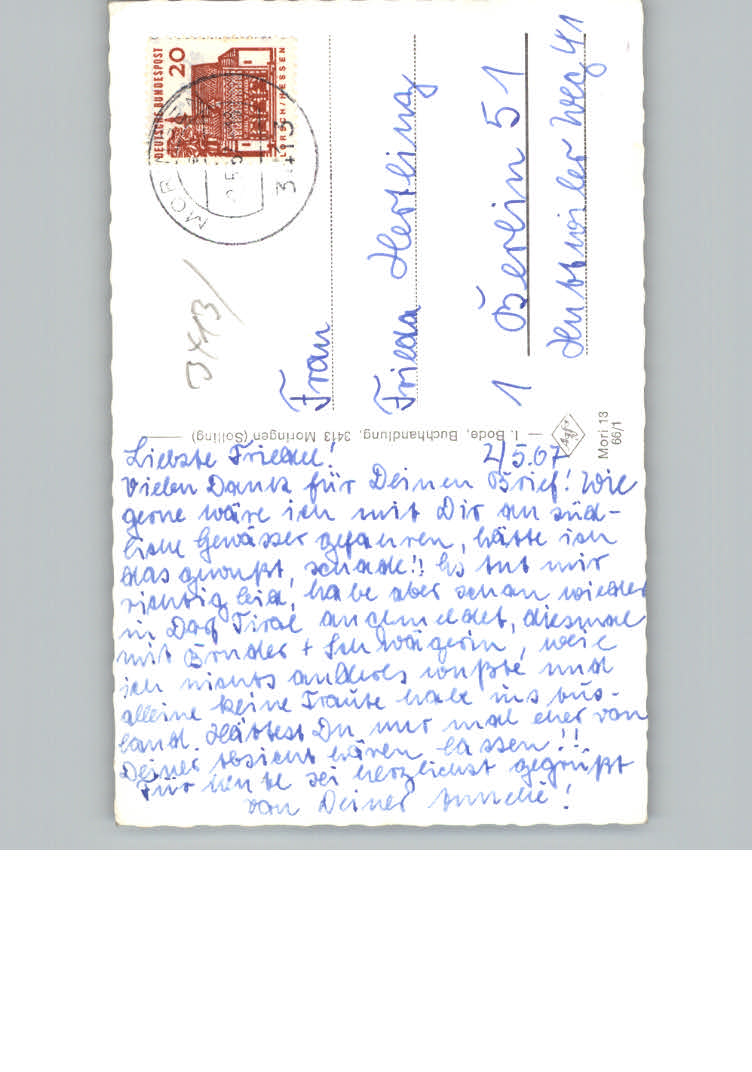 DEUTSCHE BUNDESPOST
20
LORSCH/HESSEN
MORINGEN
3413
Frau
Frieda Hertling
1 Berlin 51
Huttwiler Weg 41
I. Bode, Buchhandlung, 3413 Moringen (Solling)
Agfa
Mori 13
66/1
2/5.67
Liebste Friedel!
Vielen Dank für Deinen Brief! Wie
gerne wäre ich mit Dir an süd-
liche Gewässer gefahren, hätte ich
das gewußt, schade!! Es tut mir
richtig leid, habe aber schon wieder
in Dorf Tirol angemeldet, diesmal
mit Bruder + Schwägerin, weil
ich nichts anderes wußte und
alleine keine Traute habe ins Aus-
land. Hättest Du nur mal eher von
Deiner Absicht hören lassen!!
Für heute sei herzlichst gegrüßt
von Deiner